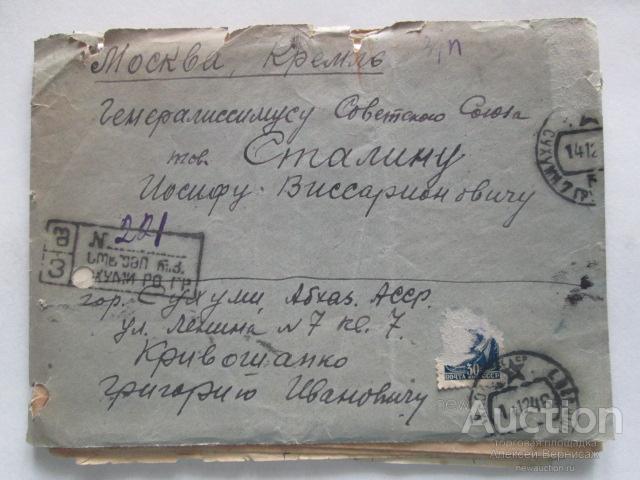 Москва, Кремль
Генералиссимусу Советского Союза
тов. Сталину
Иосифу Виссарионовичу
СУХУМИ
1412
N. 221
гор. Сухуми, Абхаз. АССР.
ул. Ленина N 7 кв. 7.
Кривошапко
Григорию Ивановичу
30
ПОЧТА СССР
Auction
торговая площадка
Алексей Вернисаж
www.newauction.ru